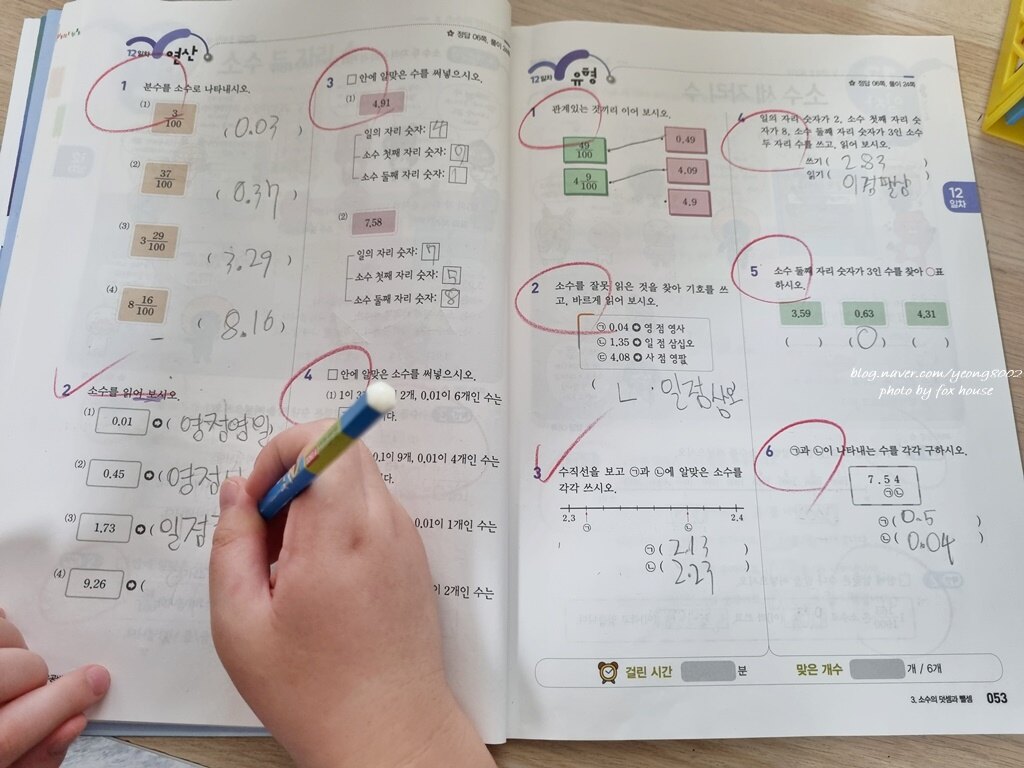 12일차 연산
☆ 정답 06쪽, 풀이
1 분수를 소수로 나타내시오.
(1) 3/100 (0.03)
(2) 37/100 (0.37)
(3) 3 29/100 (3.29)
(4) 8 16/100 (8.16)
2 소수를 읽어 보시오.
(1) 0.01 (영점영일)
(2) 0.45 (영점
(3) 1.73 (일점
(4) 9.26 (
3 □안에 알맞은 수를 써넣으시오.
(1) 4.91
일의 자리 숫자: 4
소수 첫째 자리 숫자: 9
소수 둘째 자리 숫자: 1
(2) 7.58
일의 자리 숫자: 7
소수 첫째 자리 숫자: 5
소수 둘째 자리 숫자: 8
4 □안에 알맞은 수를 써넣으시오.
(1) 1이 2개, 0.01이 6개인 수는
다.
0.1이 9개, 0.01이 4개인 수는
다.
0.01이 1개인 수는
이 2개인 수는
12일차 유형
☆ 정답 06쪽, 풀이 24쪽
1 관계있는 것끼리 이어 보시오.
49/100 0.49
4 9/100 4.09
4.9
2 소수를 잘못 읽은 것을 찾아 기호를 쓰
고, 바르게 읽어 보시오.
㉠ 0.04 영 점 영사
㉡ 1.35 일 점 삼십오
㉢ 4.08 사 점 영팔
(ㄴ. 일점삼오
3 수직선을 보고 ㉠과 ㉡에 알맞은 소수를
각각 쓰시오.
2.3 2.4
㉠ ㉡
㉠(2.13)
㉡(2.23)
4 일의 자리 숫자가 2, 소수 첫째 자리 숫
자가 8, 소수 둘째 자리 숫자가 3인 소수
두 자리 수를 쓰고, 읽어 보시오.
쓰기(2.83)
읽기(이점팔삼)
12
일차
5 소수 둘째 자리 숫자가 3인 수를 찾아 ○표
하시오.
3.59 0.63 4.31
( ) (○) ( )
blog.naver.com/yeong8002
photo by fox house
6 ㉠과 ㉡이 나타내는 수를 각각 구하시오.
7.54
㉠㉡
㉠(0.5)
㉡(0.04)
걸린 시간 분 맞은 개수 개 / 6개
3. 소수의 덧셈과 뺄셈 053